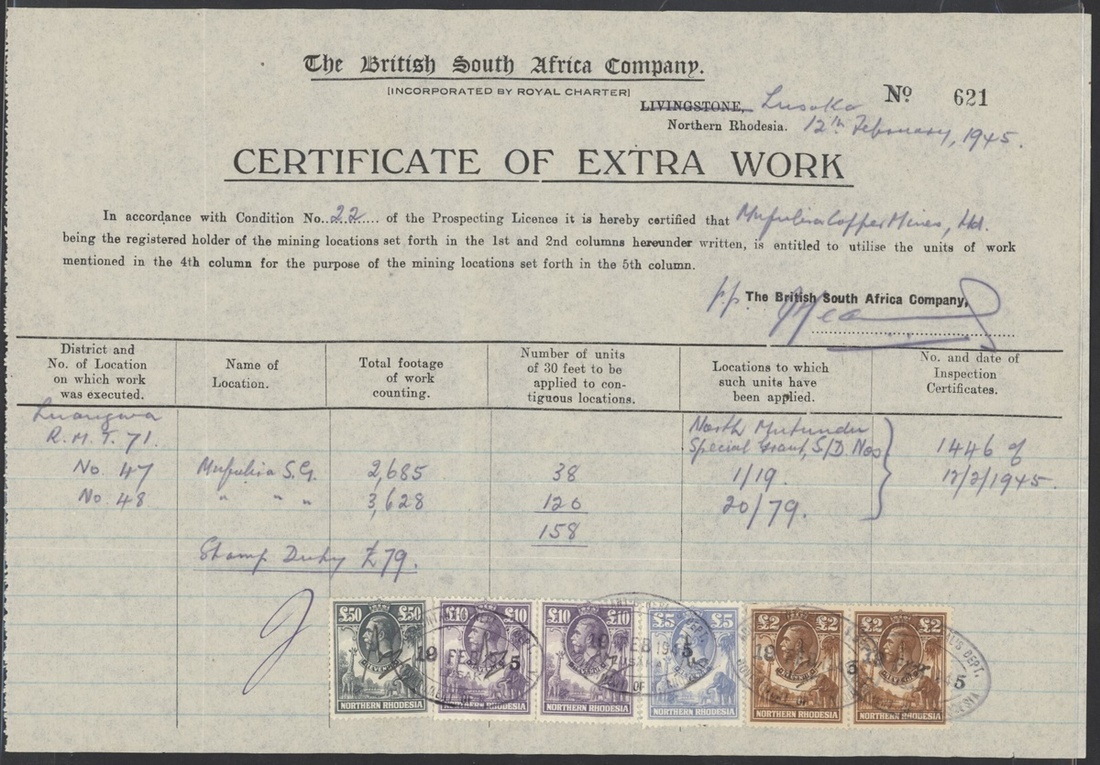 The British South Africa Company.
[INCORPORATED BY ROYAL CHARTER]
LIVINGSTONE, Lusaka
Nº 621
Northern Rhodesia. 12th February, 1945.
CERTIFICATE OF EXTRA WORK
In accordance with Condition No. 22 of the Prospecting Licence it is hereby certified that Mufulira Copper Mines, Ltd.
being the registered holder of the mining locations set forth in the 1st and 2nd columns hereunder written, is entitled to utilise the units of work
mentioned in the 4th column for the purpose of the mining locations set forth in the 5th column.
p.p. The British South Africa Company,
District and No. of Location on which work was executed.
Name of Location.
Total footage of work counting.
Number of units of 30 feet to be applied to con-tiguous locations.
Locations to which such units have been applied.
No. and date of Inspection Certificates.
Luangwa
R.M.T. 71.
North
Special Grant, S/D. Nos
1446 of
No. 47 Mufulira S.G. 2,685 38 1/19. 12/2/1945.
No. 48 " " " 3,628 120 20/79.
158
Stamp Duty £79.
£50 £50
£10 £10
£10 £10
£5 £5
£2 £2
£2 £2
19 FEB 1945
19 FEB 1945
NORTHERN RHODESIA
NORTHERN RHODESIA
NORTHERN RHODESIA
NORTHERN RHODESIA
NORTHERN RHODESIA
NORTHERN RHODESIA